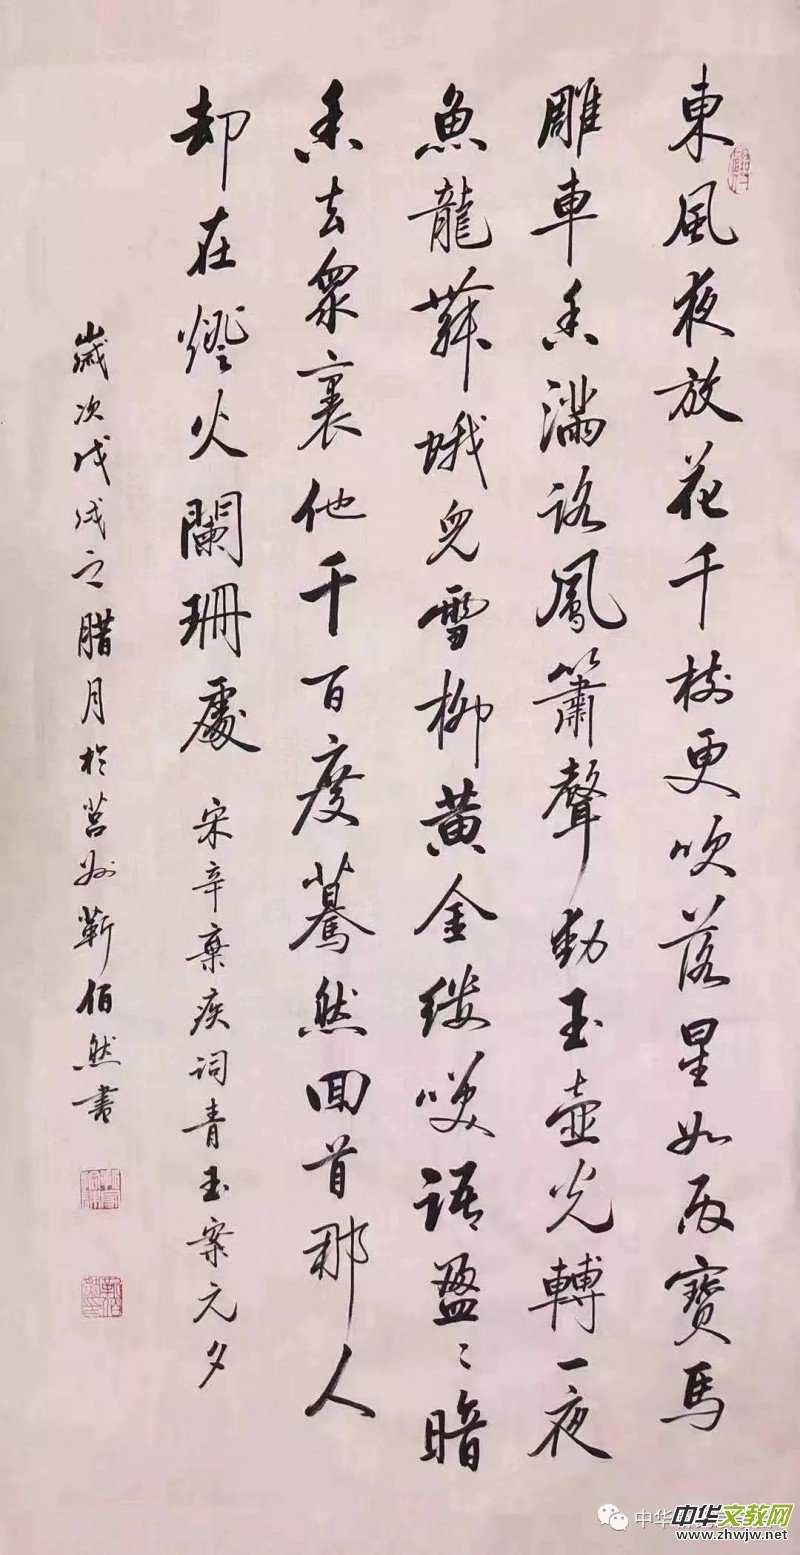 東風夜放花千樹更吹落星如雨寶馬
雕車香滿路鳳簫聲動玉壺光轉一夜
魚龍舞蛾兒雪柳黄金縷笑語盈〻暗
香去衆裏他千百度驀然回首那人
却在燈火闌珊處 宋辛棄疾詞青玉案元夕
歲次戊戌之腊月於莒州靳佰然書
中华
中华文教网
www.zhwjw.net